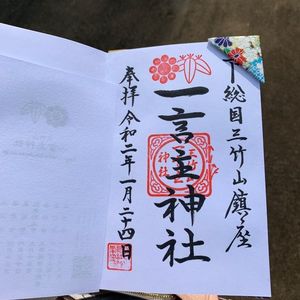 下総国三竹山鎮座
一言主神社
奉拝令和二年一月二十四日